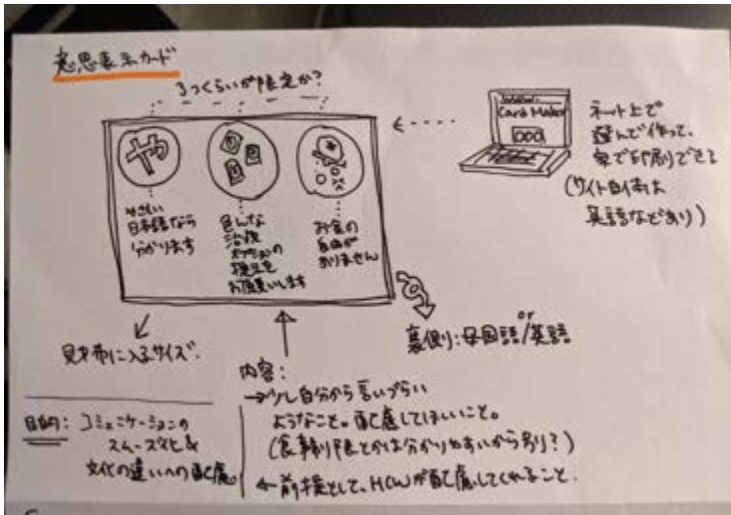 意思表示カード
3つくらいが限定か?
や
やさしい
日本語なら
分かります
色んな
治療
オプションの
提示を
お願いします
お金の
自由が
ありません
Card Maker
ネット上で
選んで作って、
家で印刷できる
(サイト自体は
英語などあり)
財布に入るサイズ.
裏側:母国語or/英語
内容:
→少し自分から言いづらい
ようなこと。配慮してほしいこと。
(食事制限とかは分かりやすいから別り?)
←前提として、HCWが配慮してくれること.
目的:コミュニケーションの
スムーズ化&
文化の違いへの配慮。